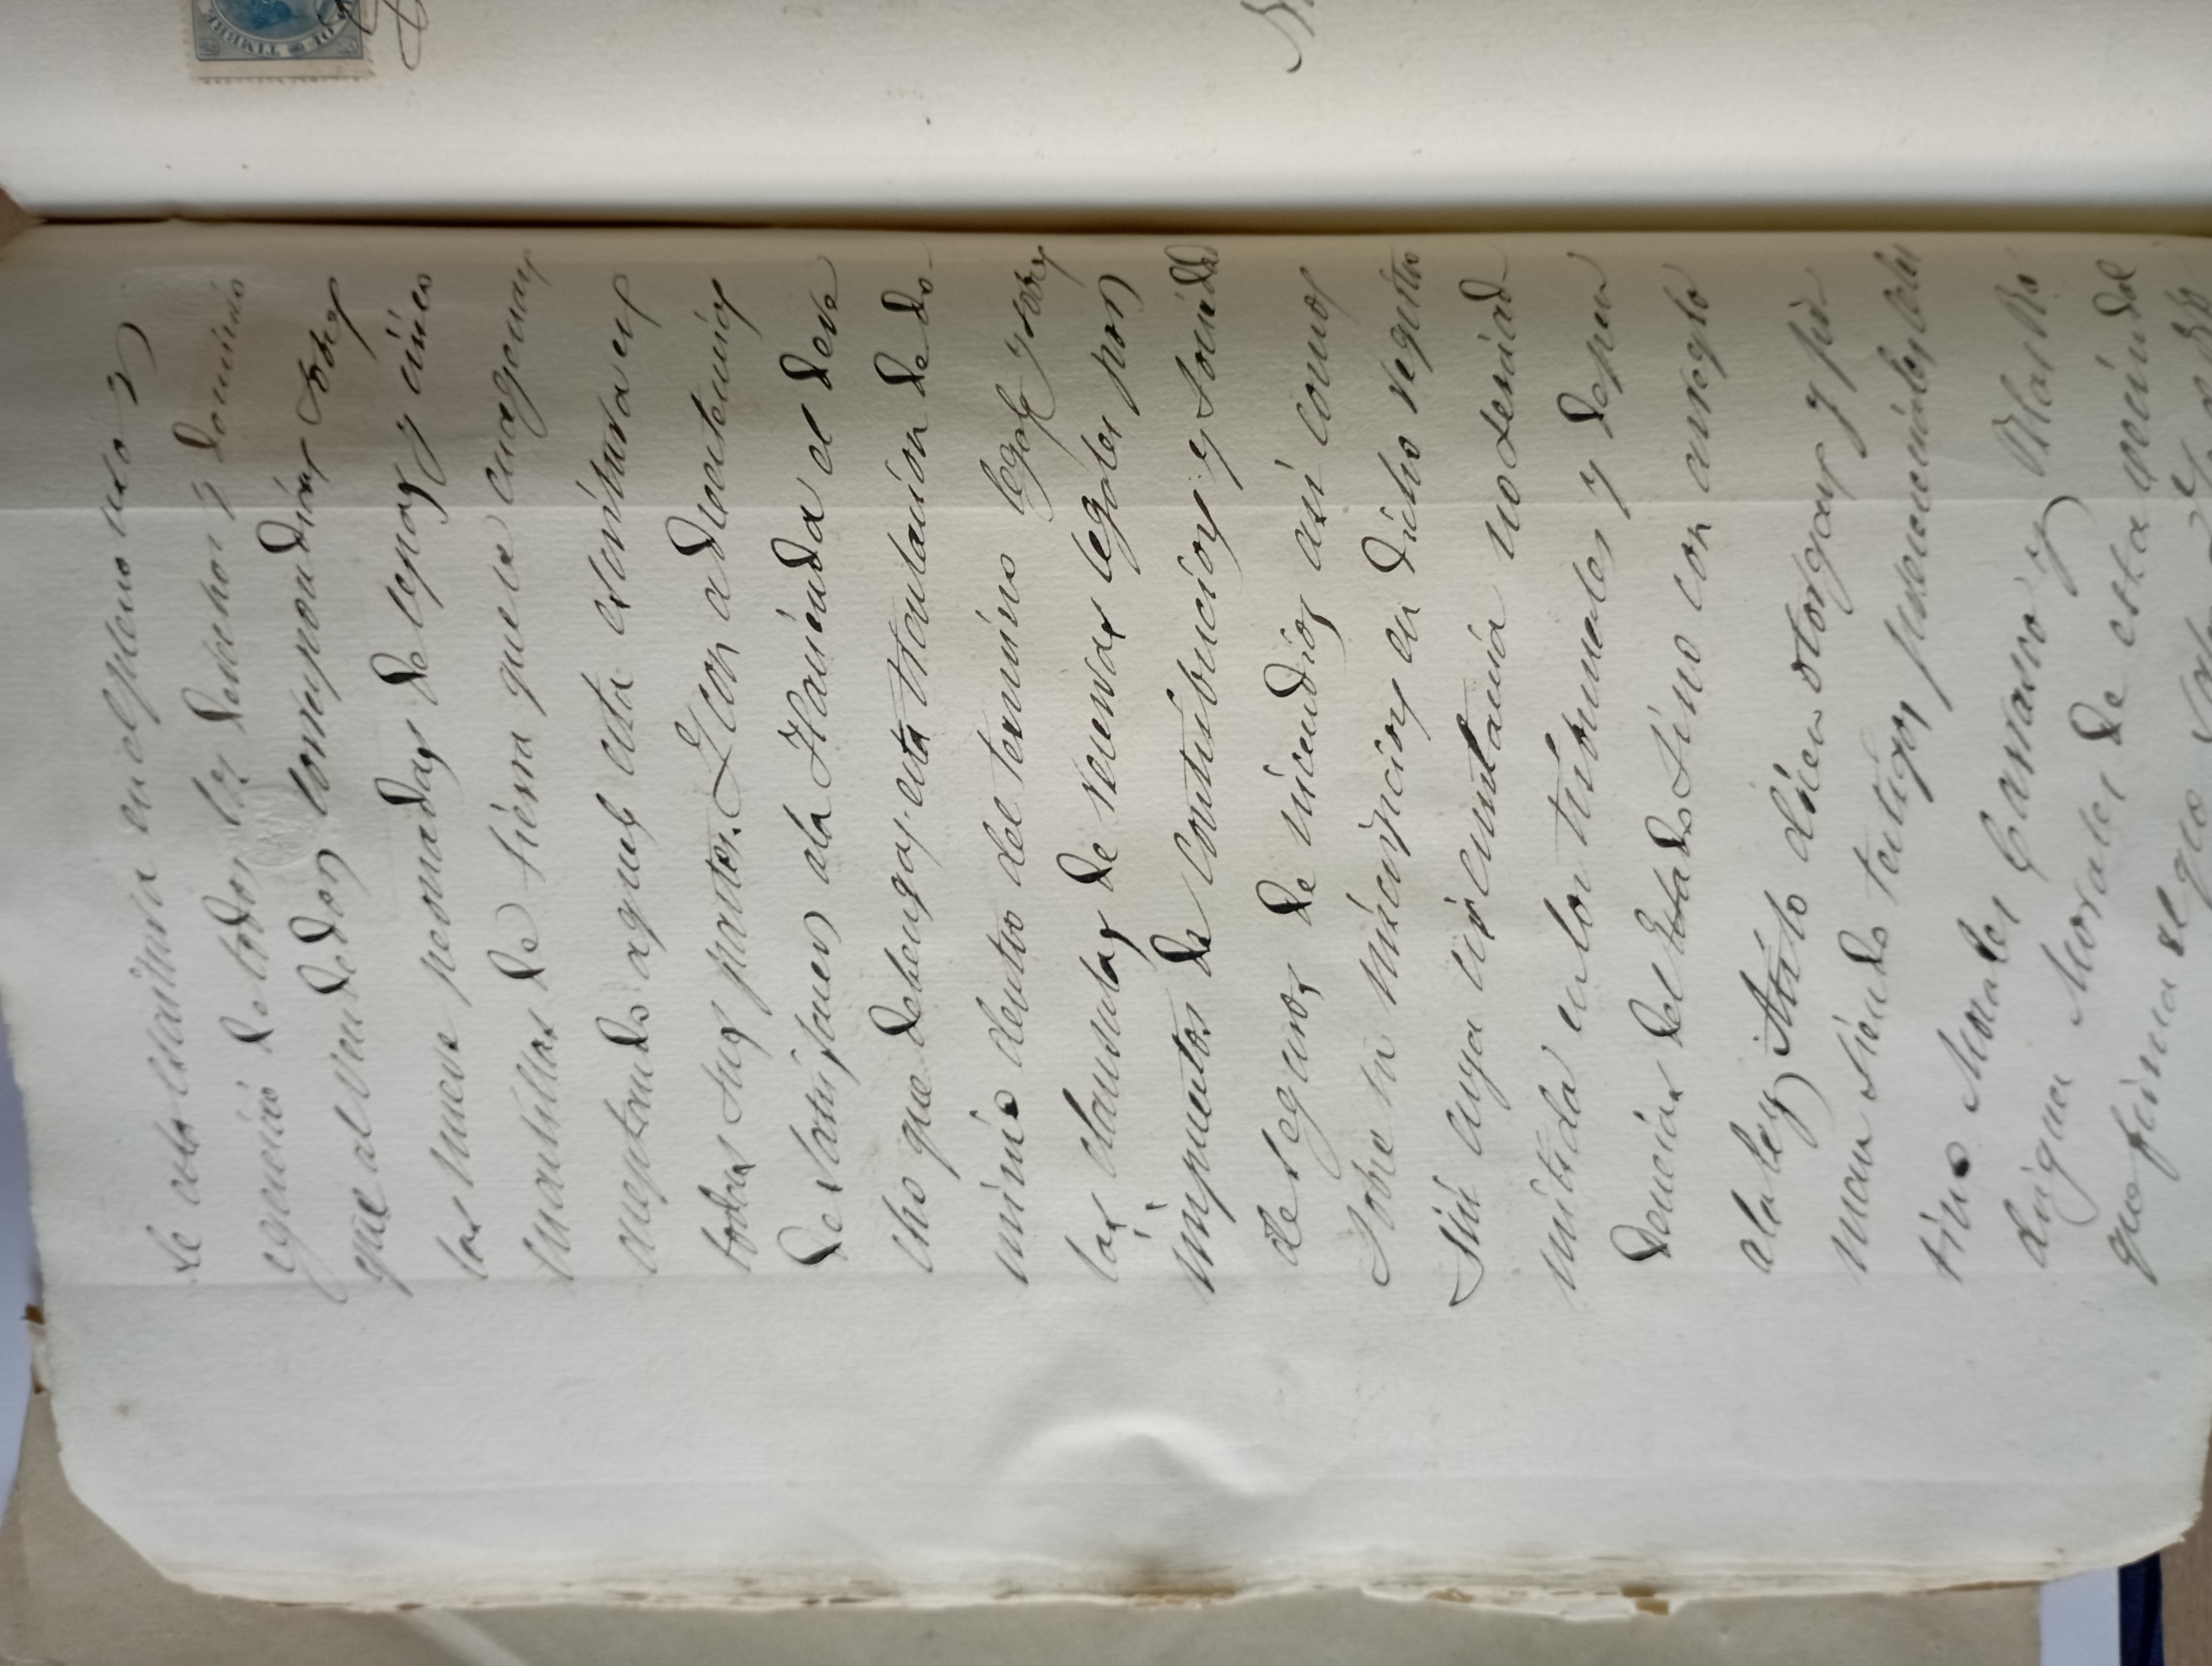 de esta escritura en el pleno uso y
egercicio de todos los derechos y dominio
que al vendedor correspondian sobre
las nueve peonadas de cepas y cinco
cuartillas de tierra que le enagenan
aceptando aquel esta escritura en
todas sus partes. Y con advertencia
de satisfacer ala Hacienda el dere
cho que debenga esta traslacion de do-
minio dentro del termino legal y sobre
las clausulas de reservas legales por
impuestos de contribucion y sociedad
de seguros de incendios asi como
sobre su inscripcion en dicho registro
sin cuya circunstancia no será ad-
mitida en los tribunales y depen
dencias del Estado sino con arreglo
ala ley, Asi lo dicen otorgan y fir-
man siendo testigos presenciales Celes
tino Morales Carrasco y Blas Ro
driguez Morales de esta vecindad
que firma el que sabe
DEL TIMBRE